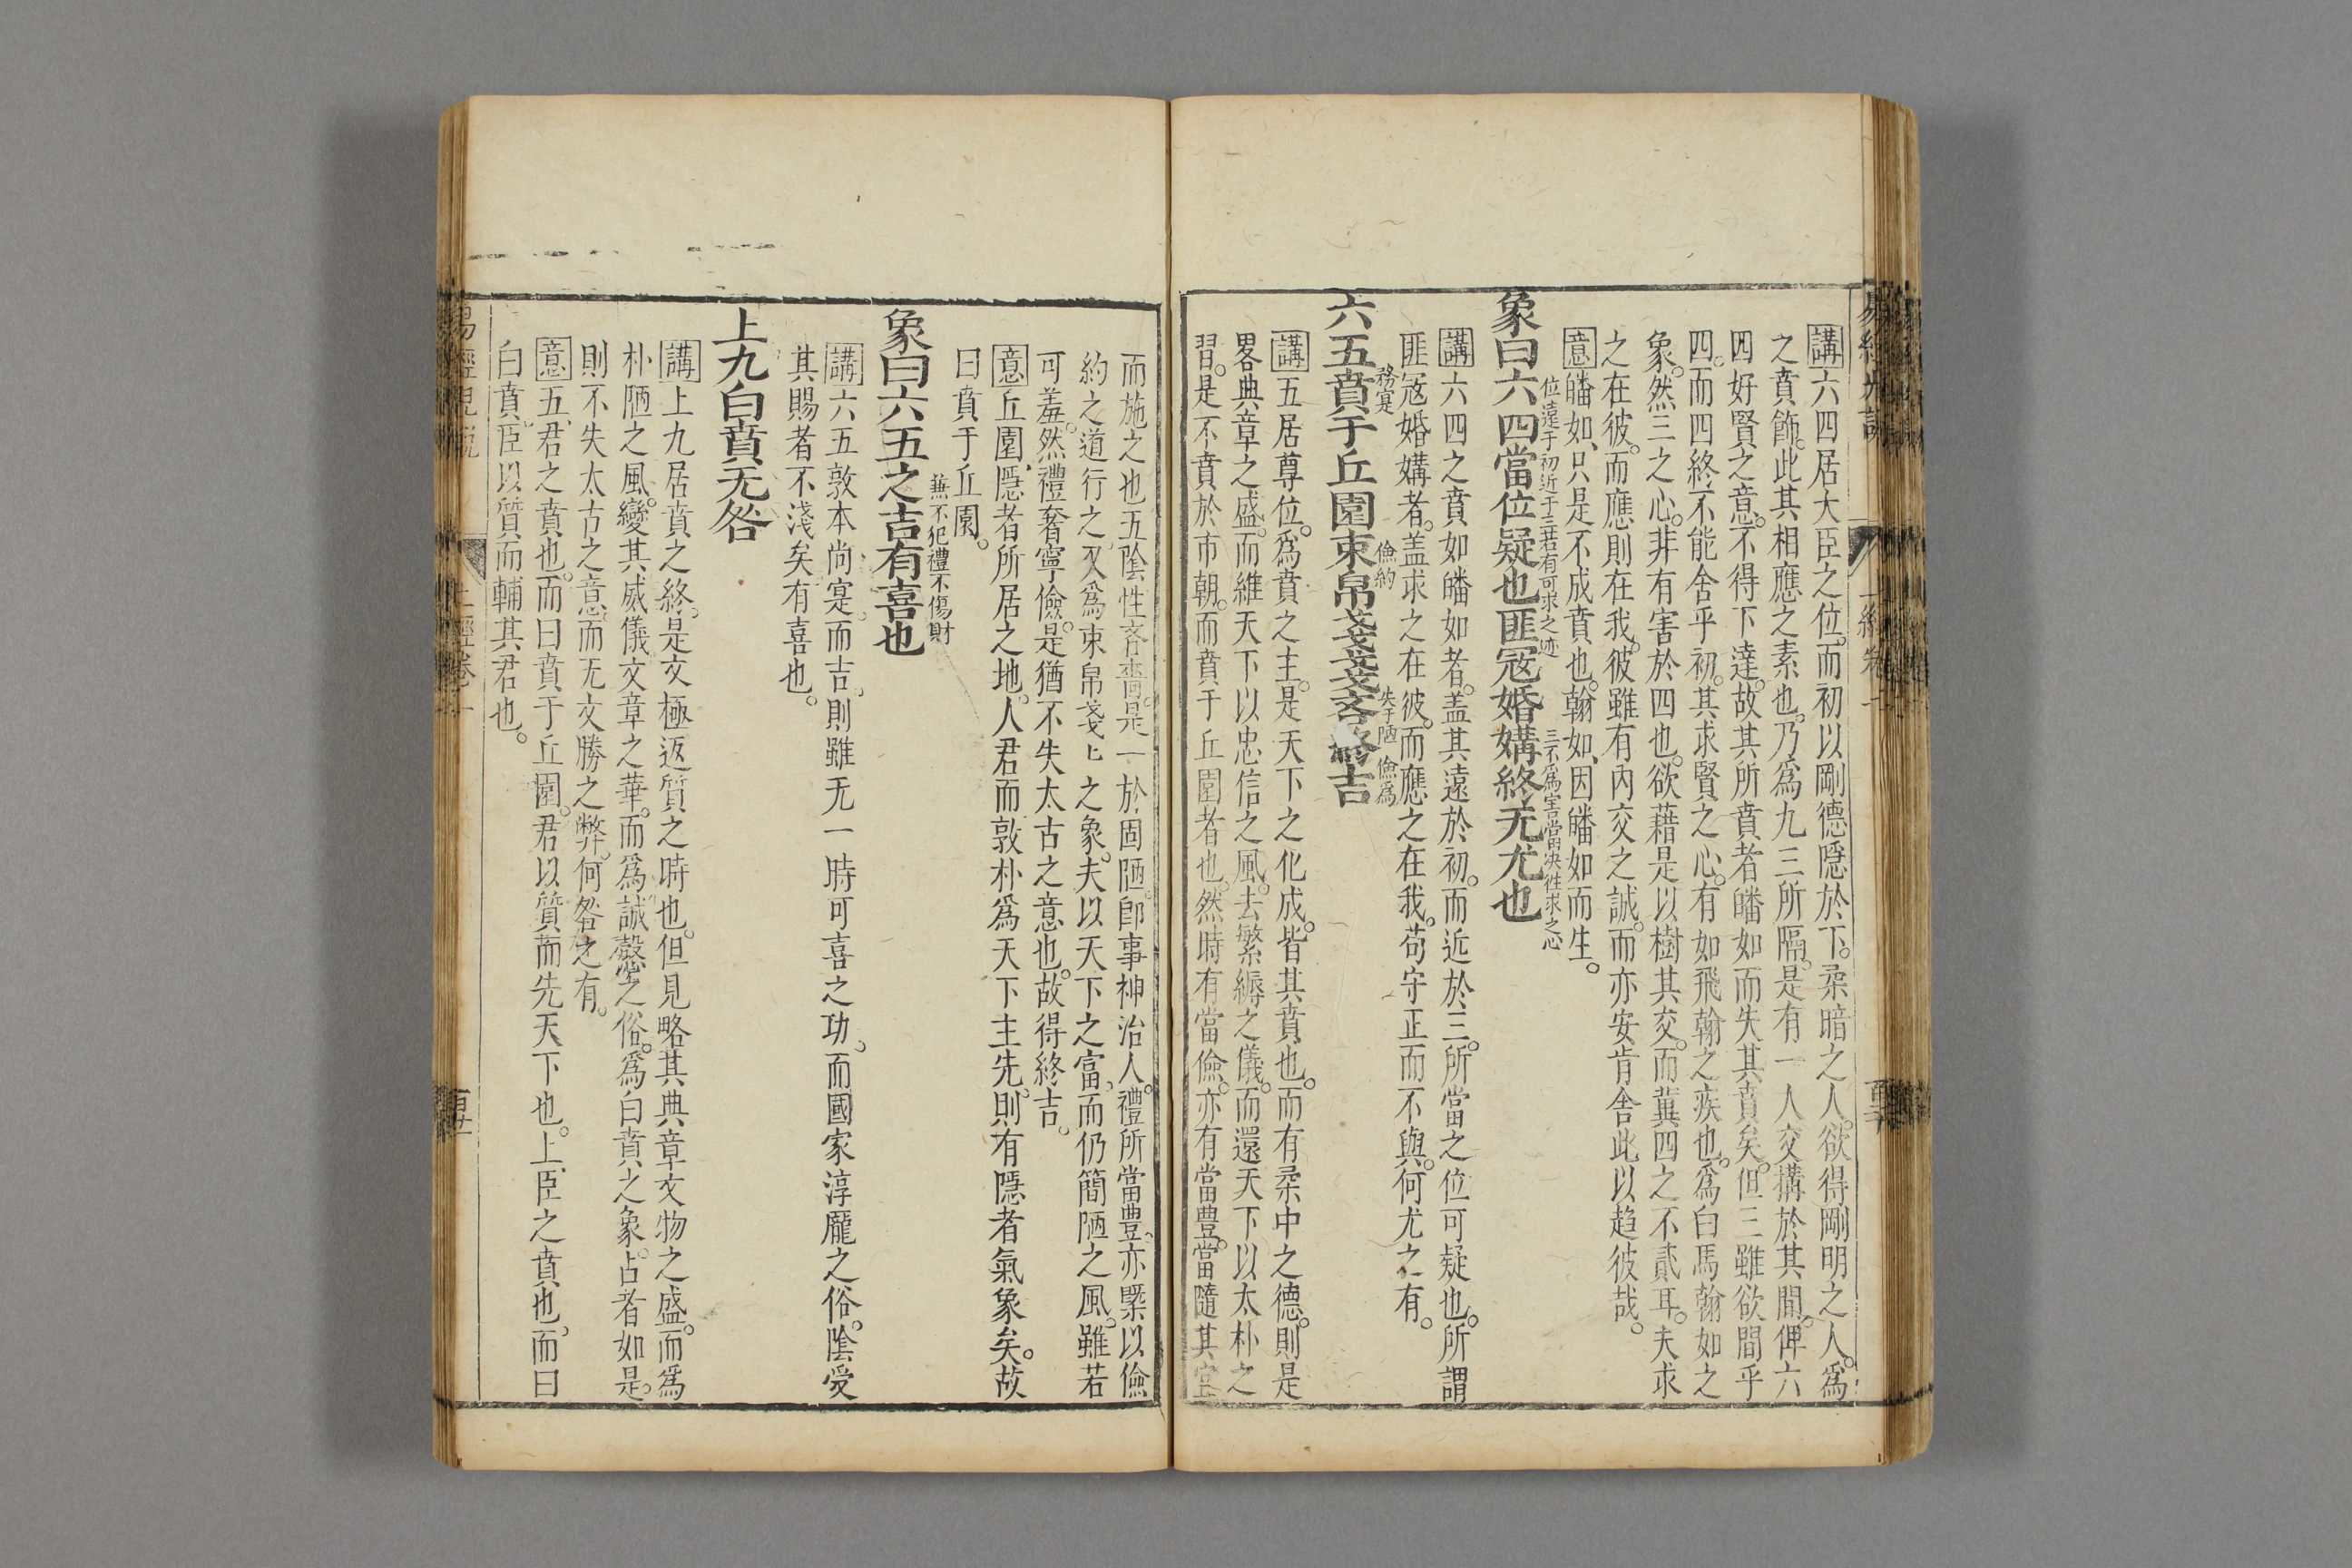 講六四居大臣之位。而初以剛德隱於下。柔暗之人。欲得剛明之人。爲
之賁飾。此其相應之素也。乃爲九三所隔。是有一人交搆於其間。俾六
四好賢之意。不得下達。故其所賁者皤如而失其賁矣。但三雖欲間乎
四。而四終不能舍乎初。其求賢之心。有如飛翰之疾也。爲白馬翰如之
象。然三之心。非有害於四也。欲藉是以樹其交。而冀四之不貳耳。夫求
之在彼。而應則在我。彼雖有內交之誠。而亦安肯舍此以趋彼哉。
意皤如、只是不成賁也。翰如、因皤如而生。
位遠于初近于三若有可求之迹 三不爲害當决徃求之心
象曰六四當位疑也匪寇婚媾終无尤也
講六四之賁如皤如者。盖其遠於初。而近於三。所當之位可疑也。所謂
匪寇婚媾者。盖求之在彼。而應之在我。苟守正而不與。何尤之有。
務寔 儉約 失于陋 儉爲
六五賁于丘園束帛戔戔吝終吉
講五居尊位。爲賁之主。是天下之化成。皆其賁也。而有柔中之德。則是
畧典章之盛。而維天下以忠信之風。去繁縟之儀。而還天下以太朴之
習。是不賁於市朝。而賁于丘園者也。然時有當儉。亦有當豊。當隨其宜
而施之也五陰性吝嗇。是一於固陋。卽事神治人。禮所當豊、亦槩以儉
約之道行之、又爲束帛戔〻之象。夫以天下之富、而仍簡陋之風。雖若
可羞。然禮奢寧儉。是猶不失太古之意也。故得終吉。
意丘園、隱者所居之地。人君而敦朴爲天下主先。則有隱者氣象矣。故
曰賁于丘園。
無不犯禮不傷財
象曰六五之吉有喜也
講六五敦本尚寔。而吉。則雖无一時可喜之功。而國家淳龐之俗。陰受
其賜者不淺矣。有喜也。
上九白賁无咎
講上九居賁之終。是文極返質之時也。但見略其典章文物之盛。而爲
朴陋之風。變其威儀文章之華。而爲誠慤之俗。爲白賁之象。占者如是。
則不失太古之意。而无文勝之弊。何咎之有。
意五、君之賁也。而曰賁于丘園。君以質而先天下也。上、臣之賁也。而曰
白賁。臣以質而輔其君也。